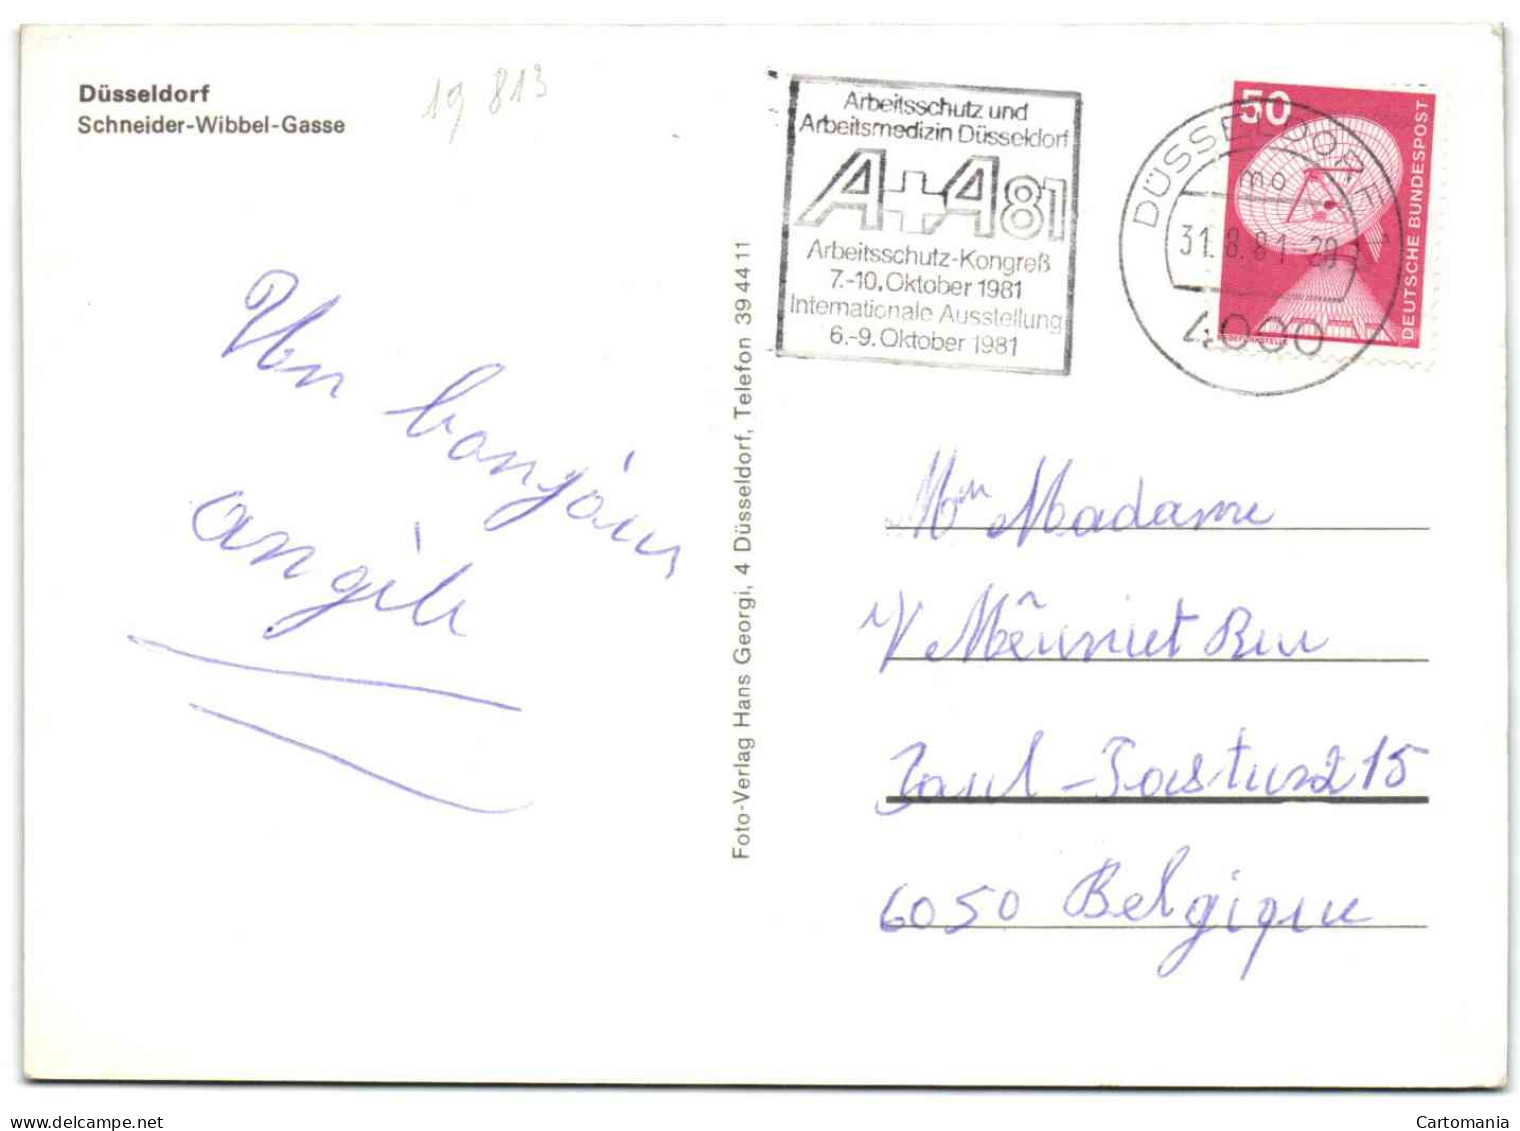 Düsseldorf
Schneider-Wibbel-Gasse
19 813
Arbeitsschutz und
Arbeitsmedizin Düsseldorf
A+A81
Arbeitsschutz-Kongreß
7.-10. Oktober 1981
Internationale Ausstellung
6.-9. Oktober 1981
DÜSSELDORF 1
mo
31.8.81-20
4000
50
DEUTSCHE BUNDESPOST
ERDEFUNKSTELLE
Un bonjour
angèle
Foto-Verlag Hans Georgi, 4 Düsseldorf, Telefon 39 44 11
Mr Madame
V Meûnier Rue
Paul-Pastur 215
6050 Belgique
Cartomania